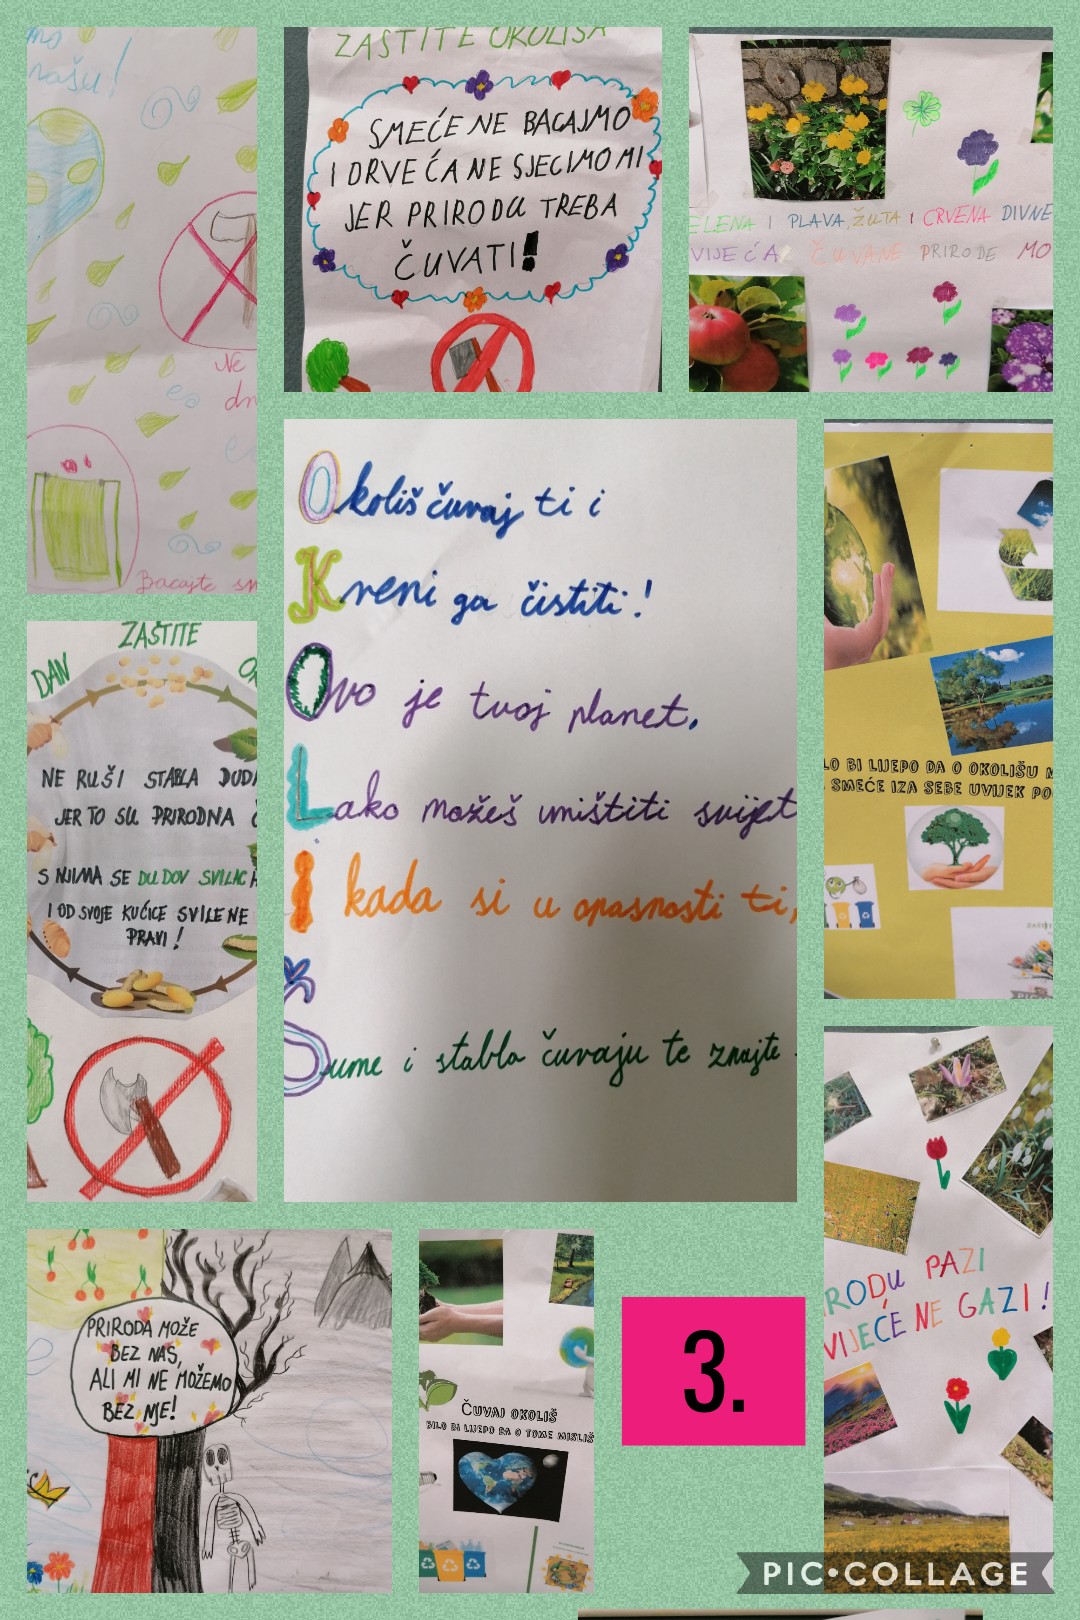 našu!
Ne
Bacajte
ZAŠTITE OKOLIŠA
SMEĆE NE BACAJMO
I DRVEĆA NE SJECIMO MI
JER PRIRODU TREBA
ČUVATI!
ELENA I PLAVA, ŽUTA I CRVENA DIVNE
VIJEĆA ČUVANE PRIRODE MO
Okoliš čuvaj ti i
Kreni ga čistiti!
Ovo je tvoj planet.
Lako možeš uništiti svijet
I kada si u opasnosti ti,
Šume i stabla čuvaju te znajte
DAN ZAŠTITE
NE RUŠI STABLA
JER TO SU PRIRODNA
S NJIMA SE DUDOV SVILAC
I OD SVOJE KUĆICE SVILENE
PRAVI!
LO BI LIJEPO DA O OKOLIŠU
SMEĆE IZA SEBE UVIJEK PO
RODU PAZI
VIJEĆE NE GAZI!
PRIRODA MOŽE
BEZ NAS,
ALI MI NE MOŽEMO
BEZ NJE!
ČUVAJ OKOLIŠ
BILO BI LIJEPO DA O TOME MISLIŠ
3.
PIC•COLLAGE